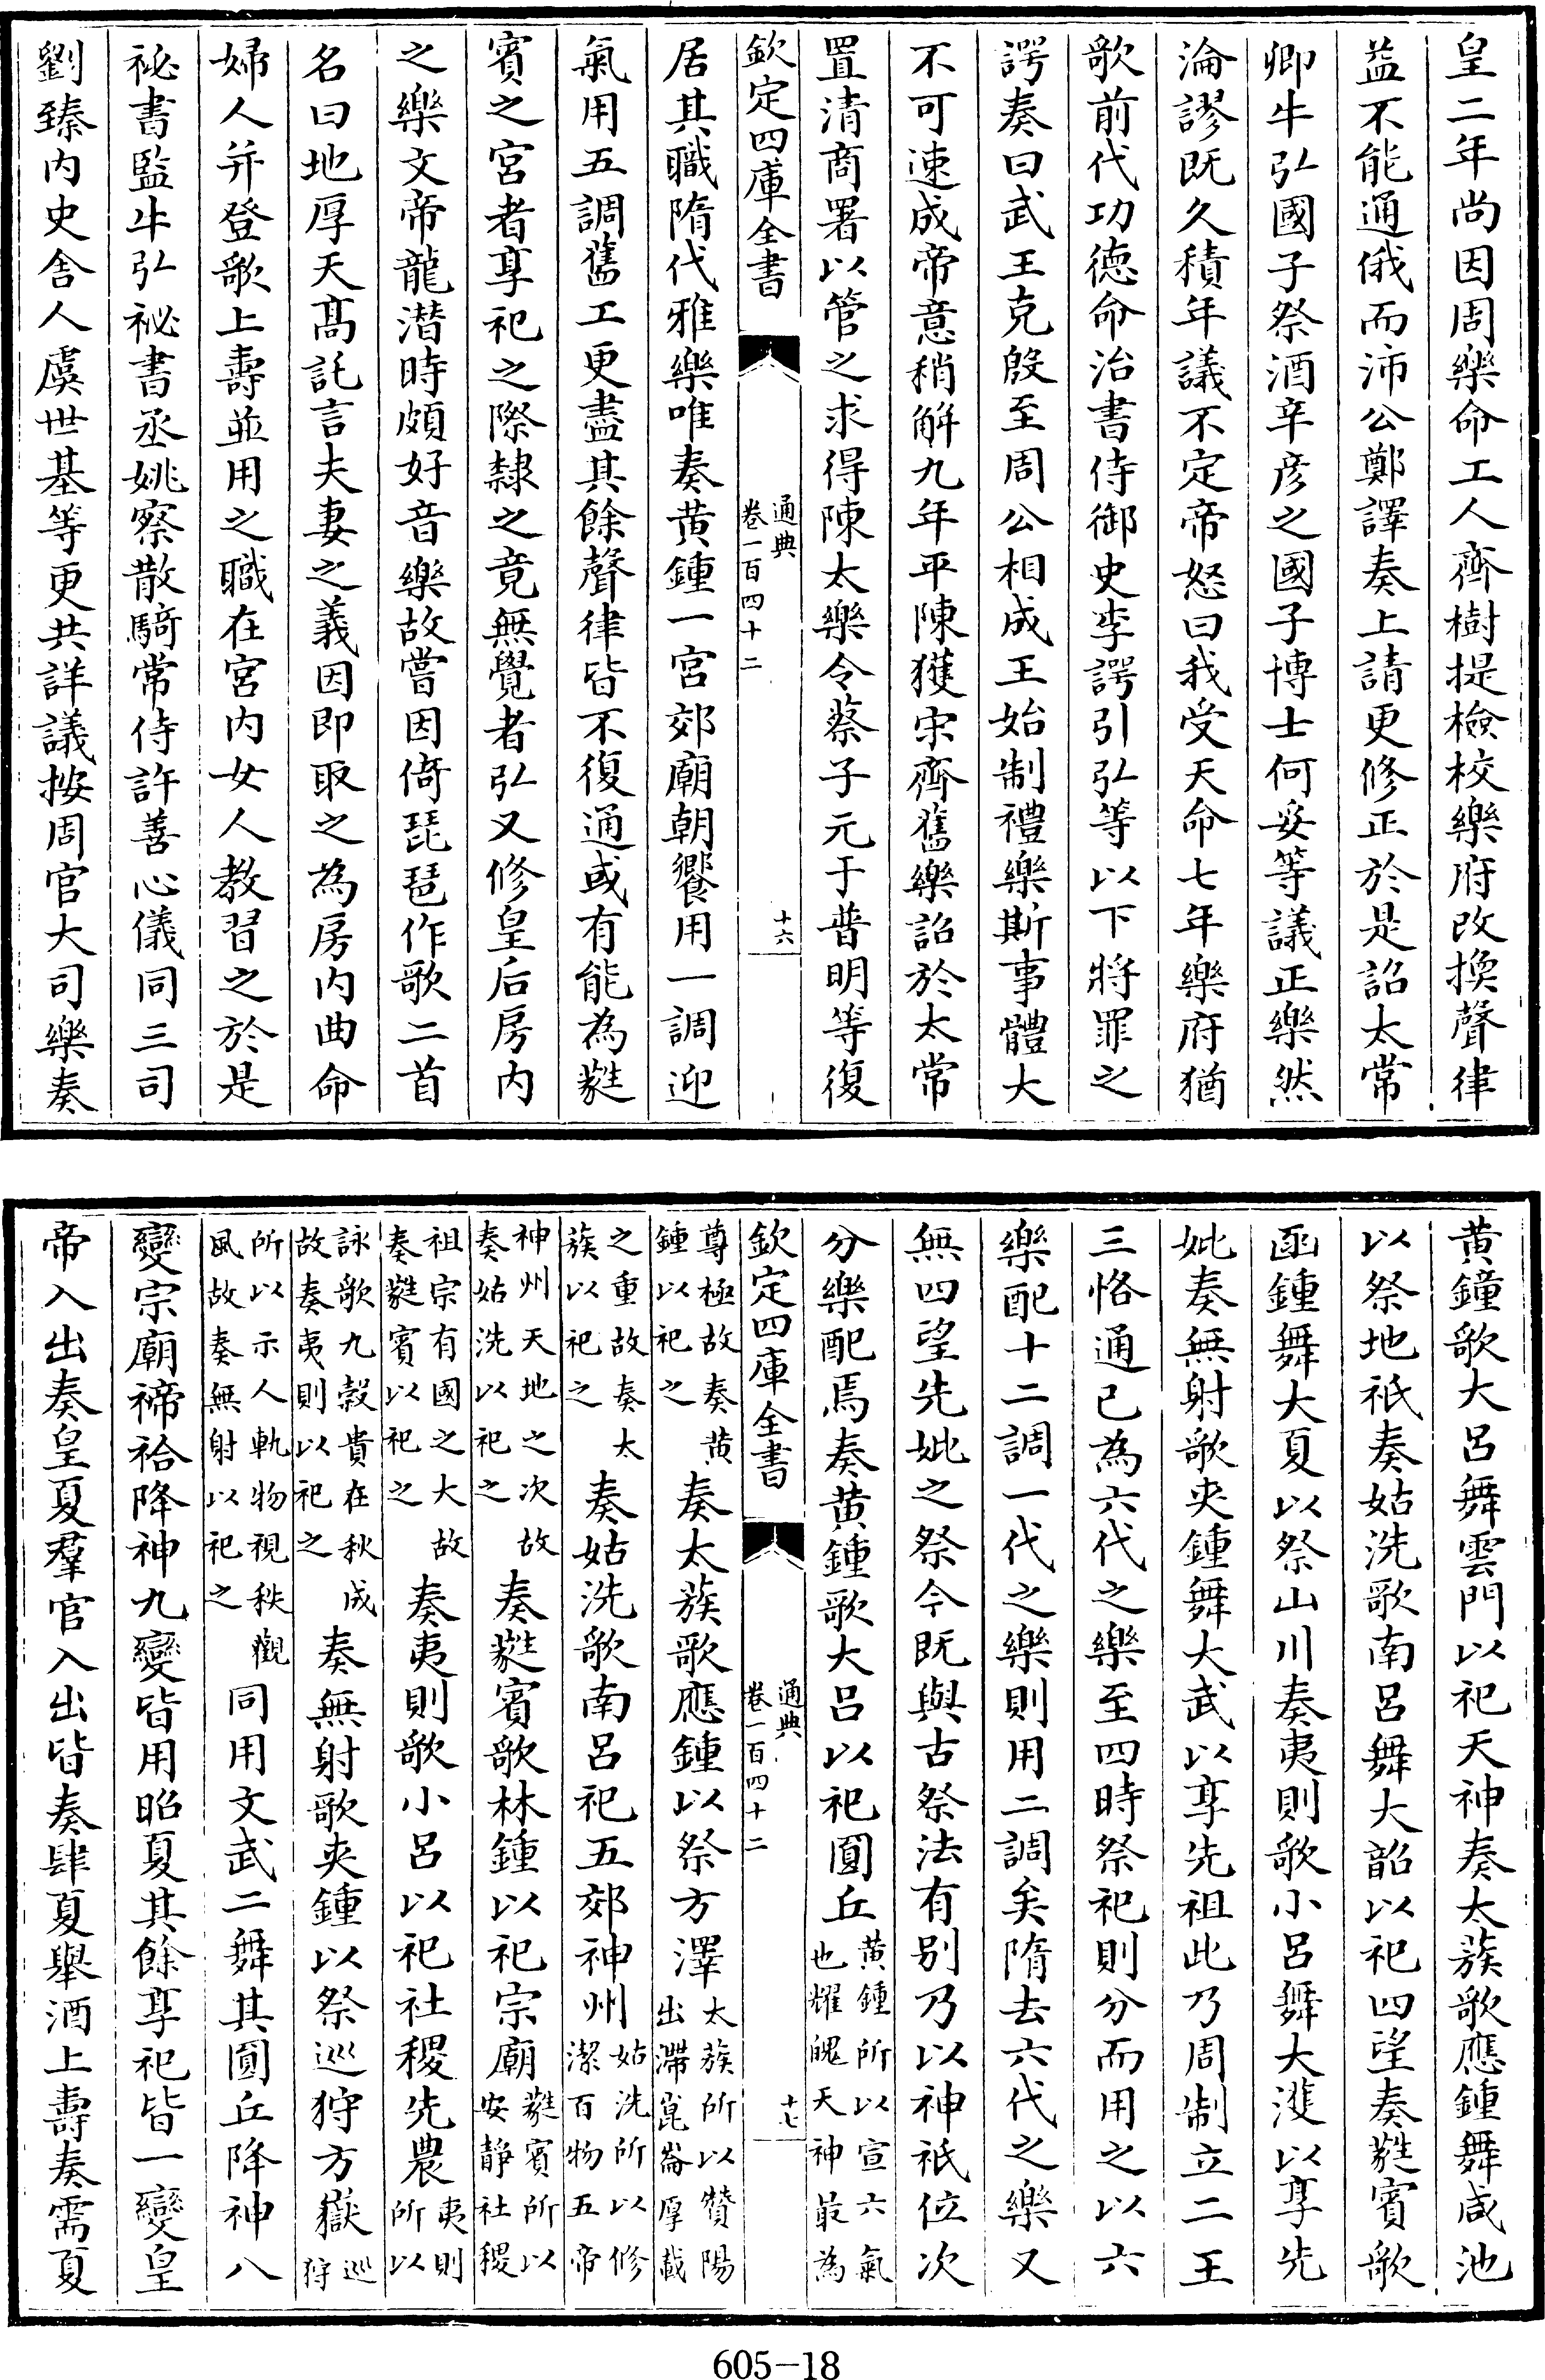 皇二年尚因周樂命工人齊樹提檢校樂府改換聲律
益不能通俄而沛公鄭譯奏上請更修正於是詔太常
卿牛弘國子祭酒辛彦之國子博士何妥等議正樂然
淪謬既久積年議不定帝怒曰我受天命七年樂府猶
歌前代功德命治書侍御史李諤引弘等以下將罪之
諤奏曰武王克殷至周公相成王始制禮樂斯事體大
不可速成帝意稍解九年平陳獲宋齊舊樂詔於太常
置清商署以管之求得陳太樂令蔡子元于普明等復
欽定四庫全書
通典
卷一百四十二
十六
居其職隋代雅樂唯奏黄鍾一宮郊廟朝饗用一調迎
氣用五調舊工更盡其餘聲律皆不復通或有能為蕤
賓之宮者享祀之際隸之竟無覺者弘又修皇后房内
之樂文帝龍潛時頗好音樂故嘗因倚琵琶作歌二首
名曰地厚天髙託言夫妻之義因即取之為房内曲命
婦人并登歌上壽並用之職在宮内女人教習之於是
祕書監牛弘祕書丞姚察散騎常侍許善心儀同三司
劉臻内史舍人虞世基等更共詳議按周官大司樂奏
黄鐘歌大呂舞雲門以祀天神奏太蔟歌應鍾舞咸池
以祭地祇奏姑洗歌南呂舞大韶以祀四望奏蕤賓歌
函鍾舞大夏以祭山川奏夷則歌小呂舞大濩以享先
妣奏無射歌夾鍾舞大武以享先祖此乃周制立二王
三恪通已為六代之樂至四時祭祀則分而用之以六
樂配十二調一代之樂則用二調矣隋去六代之樂又
無四望先妣之祭今既與古祭法有别乃以神祇位次
分樂配焉奏黄鍾歌大呂以祀圓丘黄鍾所以宣六氣也耀魄天神最為
欽定四庫全書
通典
卷一百四十二
十七
尊極故奏黄鍾以祀之奏太蔟歌應鍾以祭方澤太蔟所以贊陽出滯崑崙厚載
之重故奏太蔟以祀之奏姑洗歌南呂祀五郊神州姑洗所以修潔百物五帝
神州天地之次故奏姑洗以祀之奏蕤賓歌林鍾以祀宗廟蕤賓所以安靜社稷
祖宗有國之大故奏蕤賓以祀之奏夷則歌小呂以祀社稷先農夷則所以
詠歌九穀貴在秋成故奏夷則以祀之奏無射歌夾鍾以祭巡狩方嶽巡狩
所以示人軌物視秩觀風故奏無射以祀之同用文武二舞其圓丘降神八
變宗廟禘祫降神九變皆用昭夏其餘享祀皆一變皇
帝入出奏皇夏羣官入出皆奏肆夏舉酒上壽奏需夏
605-18